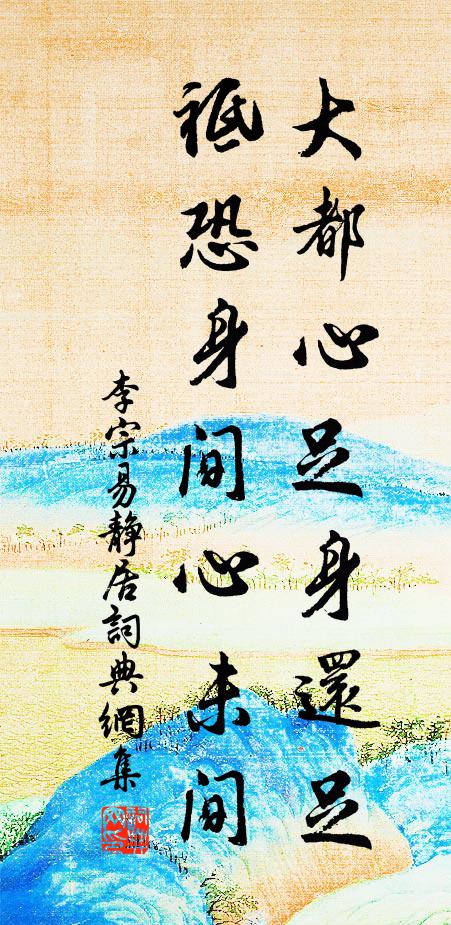 大都心足身還足
祗恐身間心未間
李宗易靜居詞典網集